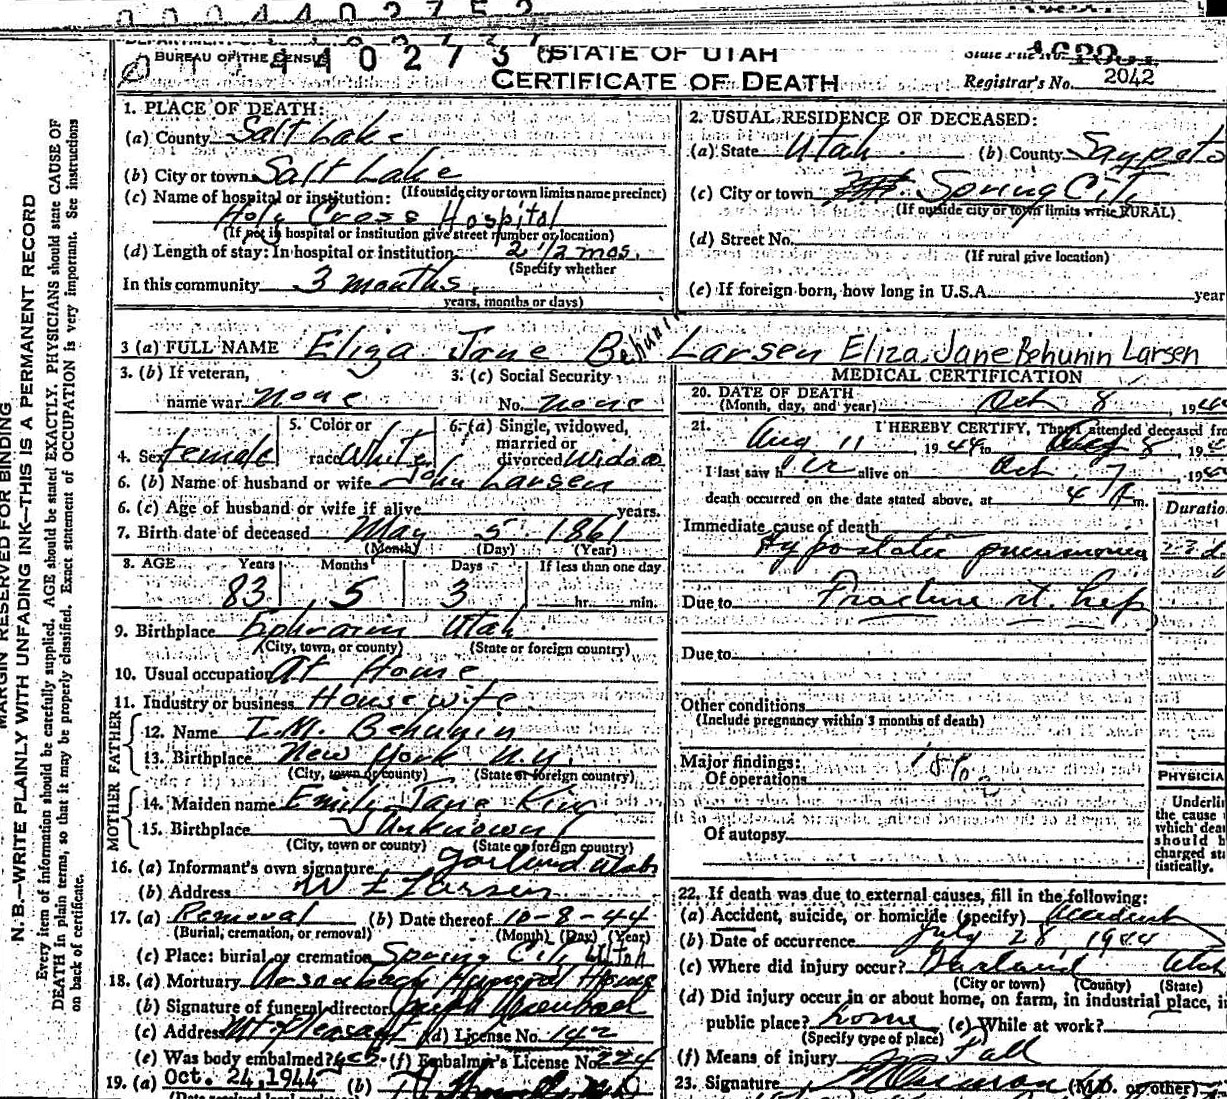 0 0 0 4 4 0 2 7 5 2
BUREAU OF THE CENSUS
4 4 0 2 7 3 6
STATE OF UTAH
CERTIFICATE OF DEATH
State File No.
Registrar's No. 2042
MARGIN RESERVED FOR BINDING
N. B.—WRITE PLAINLY WITH UNFADING INK—THIS IS A PERMANENT RECORD
Every item of information should be carefully supplied. AGE should be stated EXACTLY. PHYSICIANS should state CAUSE OF
DEATH in plain terms, so that it may be properly classified. Exact statement of OCCUPATION is very important. See instructions
on back of certificate.
1. PLACE OF DEATH:
(a) County Salt Lake
(b) City or town Salt Lake
(If outside city or town limits name precinct)
(c) Name of hospital or institution:
Holy Cross Hospital
(If not in hospital or institution give street number or location)
(d) Length of stay: In hospital or institution 2 1/2 mos.
(Specify whether
In this community 3 months
years, months or days)
2. USUAL RESIDENCE OF DECEASED:
(a) State Utah (b) County Sanpete
(c) City or town Spring City
(If outside city or town limits write RURAL)
(d) Street No.
(If rural give location)
(e) If foreign born, how long in U.S.A. year
3 (a) FULL NAME Eliza Jane Behunin Larsen Eliza Jane Behunin Larsen
3. (b) If veteran,
name war none
3. (c) Social Security
No. none
4. Sex female
5. Color or
race White
6. (a) Single, widowed,
married or
divorced Widow
6. (b) Name of husband or wife John Larsen
6. (c) Age of husband or wife if alive years.
7. Birth date of deceased May 5 1861
(Month) (Day) (Year)
8. AGE Years Months Days If less than one day
83 5 3 hr. min.
9. Birthplace Ephraim Utah
(City, town, or county) (State or foreign country)
10. Usual occupation At Home
11. Industry or business Housewife
FATHER
12. Name I. M. Behunin
13. Birthplace New York N.Y.
(City, town or county) (State or foreign country)
MOTHER
14. Maiden name Emily Jane King
15. Birthplace Unknown
(City, town or county) (State or foreign country)
16. (a) Informant's own signature Garland Utah
(b) Address W E Larsen
17. (a) Removal (b) Date thereof 10-8-44
(Burial, cremation, or removal) (Month) (Day) (Year)
(c) Place: burial or cremation Spring City Utah
18. (a) Mortuary Ursenbach Funeral Home
(b) Signature of funeral director Ursenbach
(c) Address Mt. Pleasant (d) License No. 142
(e) Was body embalmed? yes (f) Embalmer's License No. 224
19. (a) Oct. 24, 1944 (b)
MEDICAL CERTIFICATION
20. DATE OF DEATH
(Month, day, and year) Oct 8, 194
21. I HEREBY CERTIFY, That I attended deceased fro
Aug 11 1944 to 8 19
I last saw her alive on Oct 7, 19
death occurred on the date stated above, at 4 A m.
Duratio
Immediate cause of death
Hypostatic pneumonia 23 d
Due to Fracture rt. hip
Due to
Other conditions
(Include pregnancy within 3 months of death)
Major findings:
Of operations
Of autopsy
PHYSICIA
Underli
the cause
which dea
should b
charged sta
tistically.
22. If death was due to external causes, fill in the following:
(a) Accident, suicide, or homicide (specify) Accident
(b) Date of occurrence July 28 1944
(c) Where did injury occur? Garland Utah
(City or town) (County) (State)
(d) Did injury occur in or about home, on farm, in industrial place, in
public place? home (e) While at work?
(Specify type of place)
(f) Means of injury Fall
23. Signature (M.D. or other)